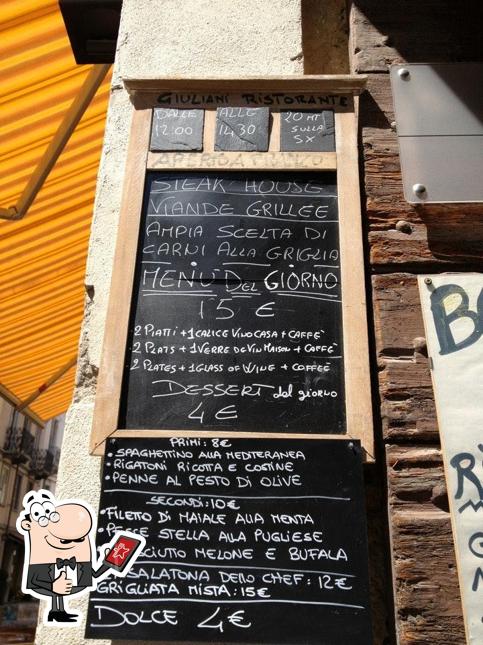 GIULIANI RISTORANTE
DALLE 12:00
ALLE 14:30
20 MT SULLA SX
APERTO A PRANZO
STEAK HOUSE
VIANDE GRILLEE
AMPIA SCELTA DI
CARNI ALLA GRIGLIA
MENU' DEL GIORNO
15 €
2 PIATTI + 1 CALICE VINO CASA + CAFFE'
2 PLATS + 1 VERRE DE VIN MAISON + CAFFÈ
2 PLATES + 1 GLASS OF WINE + COFFEE
DESSERT del giorno
4 €
PRIMI: 8€
• SPAGHETTINO ALLA MEDITERANEA
• RIGATONI RICOTTA E COSTINE
• PENNE AL PESTO DI OLIVE
SECONDI: 10€
• FILETTO DI MAIALE ALLA MENTA
• PESCE STELLA ALLA PUGLIESE
MELONE E BUFALA
SALATONA DELLO CHEF: 12€
GRIGLIATA MISTA: 15€
DOLCE 4€